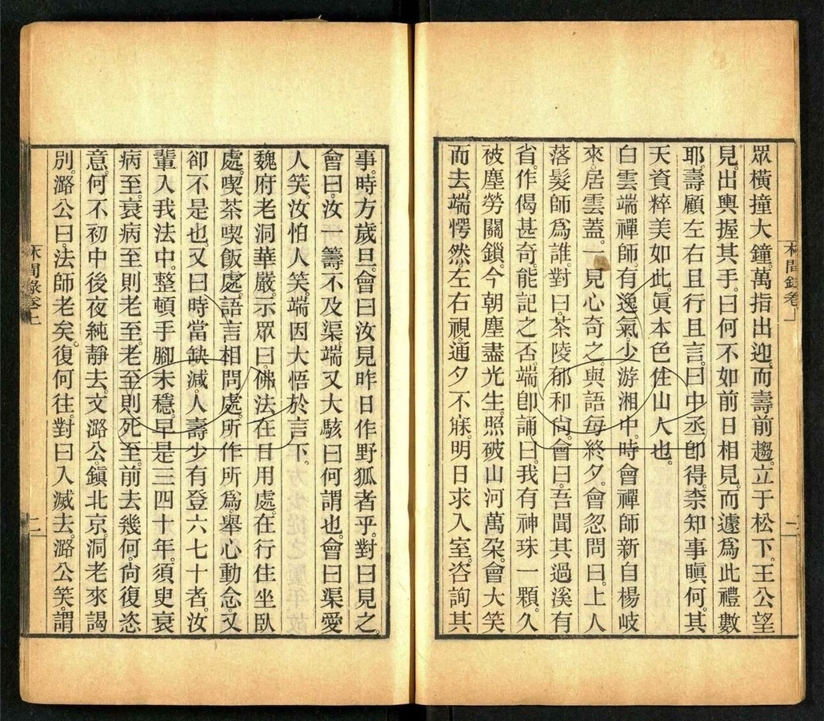 眾橫撞大鐘。萬指出迎。而壽前趨。立于松下。王公望
見。出輿握其手。曰。何不如前日相見。而遽爲此禮數
耶。壽顧左右。且行且言。曰。中丞卽得。柰知事瞋何。其
天資粹美如此。眞本色住山人也。
白雲端禪師。有逸氣。少游湘中。時會禪師新自楊岐
來。居雲蓋。一見心奇之。與語每終夕。會忽問曰。上人
落髮師爲誰。對曰。茶陵郁和尙。會曰。吾聞其過溪有
省。作偈甚奇。能記之否。端卽誦曰。我有神珠一顆。久
被塵勞關鎖。今朝塵盡光生。照破山河萬朶。會大笑
而去。端愕然左右視。通夕不寐。明日求入室。咨詢其
林間錄卷上
事。時方歲旦。會曰。汝見昨日作野狐者乎。對曰。見之。
會曰。汝一籌不及渠。端又大駭。曰。何謂也。會曰。渠愛
人笑。汝怕人笑。端因大悟於言下。
魏府老洞華嚴。示眾曰。佛法在日用處。在行住坐臥
處。喫茶喫飯處。語言相問處。所作所爲。舉心動念。又
卻不是也。又曰。時當缺減。人壽少有登六七十者。汝
輩入我法中。整頓手腳未穩。早是三四十年。須臾衰
病至。衰病至則老至。老至則死至。前去幾何。尙復恣
意。何不初中後夜純靜去。文潞公鎭北京。洞老來謁
別。潞公曰。法師老矣。復何往。對曰。入滅去。潞公笑。謂
林間錄卷上
二